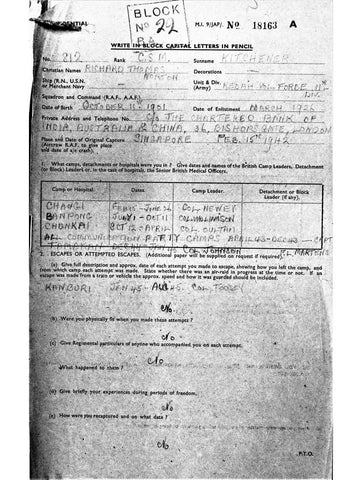 BLOCK
No 22
CONFIDENTIAL
M.I. 9/JAP/ No 18163 A
WRITE IN BLOCK CAPITAL LETTERS IN PENCIL
No. 212 Rank C.S.M. Surname KITCHENER
Christian Names RICHARD THOMAS Decorations -
Ship (R.N., U.S.N. or Merchant Navy) Unit (Army) KEDAH VOL FORCE
Squadron and Command (R.A.F., A.A.F.)
Date of Birth OCTOBER 1901 Date of Enlistment MARCH 1926
Private Address and Telephone No. C/o THE CHARTERED BANK OF
INDIA, AUSTRALIA & CHINA, 36, BISHOPSGATE, LONDON
Place and Date of Original Capture SINGAPORE FEB. 15th 1942
(Aircrew R.A.F. to give place and date of a/c crash).
1. What camps, detachments or hospitals were you in? Give dates and names of the British Camp Leaders, Detachment
(or Block) Leaders or, in the case of hospitals, the Senior British Medical Officers.
Camp or Hospital. Dates. Camp Leader. Detachment or Block Leader (if any).
CHANGI COL NEWEY
BANPONG
CHUNKAI OCT 12-APRIL COL OUTRAM
COMMUNICATION PARTY CAMPS APRIL 43-DEC 43 - CAPT
COL JOHNSON
2. ESCAPES OR ATTEMPTED ESCAPES. (Additional paper will be supplied on request if required).
(a) Give full description and approx. date of each attempt you made to escape, showing how you left the camp, and
from which camp each attempt was made. State whether there was an air-raid in progress at the time or not. If an escape
was made from a train or vehicle the approx. speed and how it was guarded should be included.
KANBURI JAN 45 - AUG 45. COL TOOSEY
(b) Were you physically fit when you made these attempts?
(c) Give Regimental particulars of anyone who accompanied you on each attempt.
What happened to them?
(d) Give briefly your experiences during periods of freedom.
(e) How were you recaptured and on what date?
P.T.O.